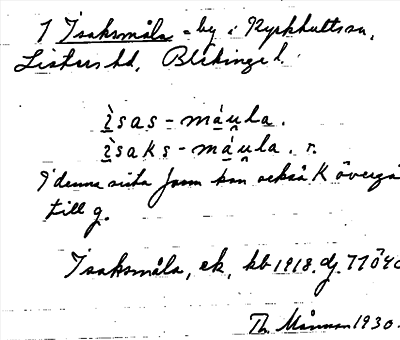 1 Isaksmåla - by i Kyrkhultssn,
Listers hd, Blekinge l.
ìsas-máula.
ìsaks-máula. r.
I denna sista form kan också K övergå
till g.
Isaksmåla, ek, kb 1918. dj.
Th. Månsson 1930.